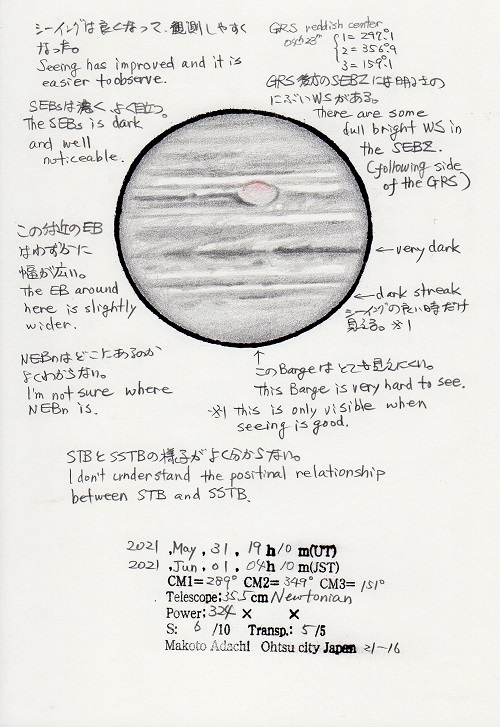 シーイングは良くなって、観測しやすく
なった。
Seeing has improved and it is
easier to observe.
SEBsは濃く、よく目立つ。
The SEBs is dark
and well
noticeable.
GRS reddish center
04h23m
1= 297°1
2= 356°9
3= 159°1
GRS後方のSEBZには明るさの
にぶいWSがある。
There are some
dull bright WS in
the SEBZ.
(following side
of the GRS)
この付近のEB
はわずかに
幅が広い。
The EB around
here is slightly
wider.
← very dark
← dark streak
シーイングの良い時だけ
見える。※1
NEBnはどこにあるのか
よくわからない。
I'm not sure where
NEBn is.
↑
このBargeはとても見えにくい。
This Barge is very hard to see.
※1 This is only visible when
seeing is good.
STBとSSTBの様子がよく分からない。
I don't understand the positinal relationship
between STB and SSTB.
2021 , May , 31 , 19 h 10 m(UT)
2021 , Jun , 01 , 04 h 10 m(JST)
CM1= 289° CM2= 349° CM3= 151°
Telescope: 35.5 cm Newtonian
Power: 324 × ×
S: 6 /10 Transp.: 5 /5
Makoto Adachi Ohtsu city Japan 21-16